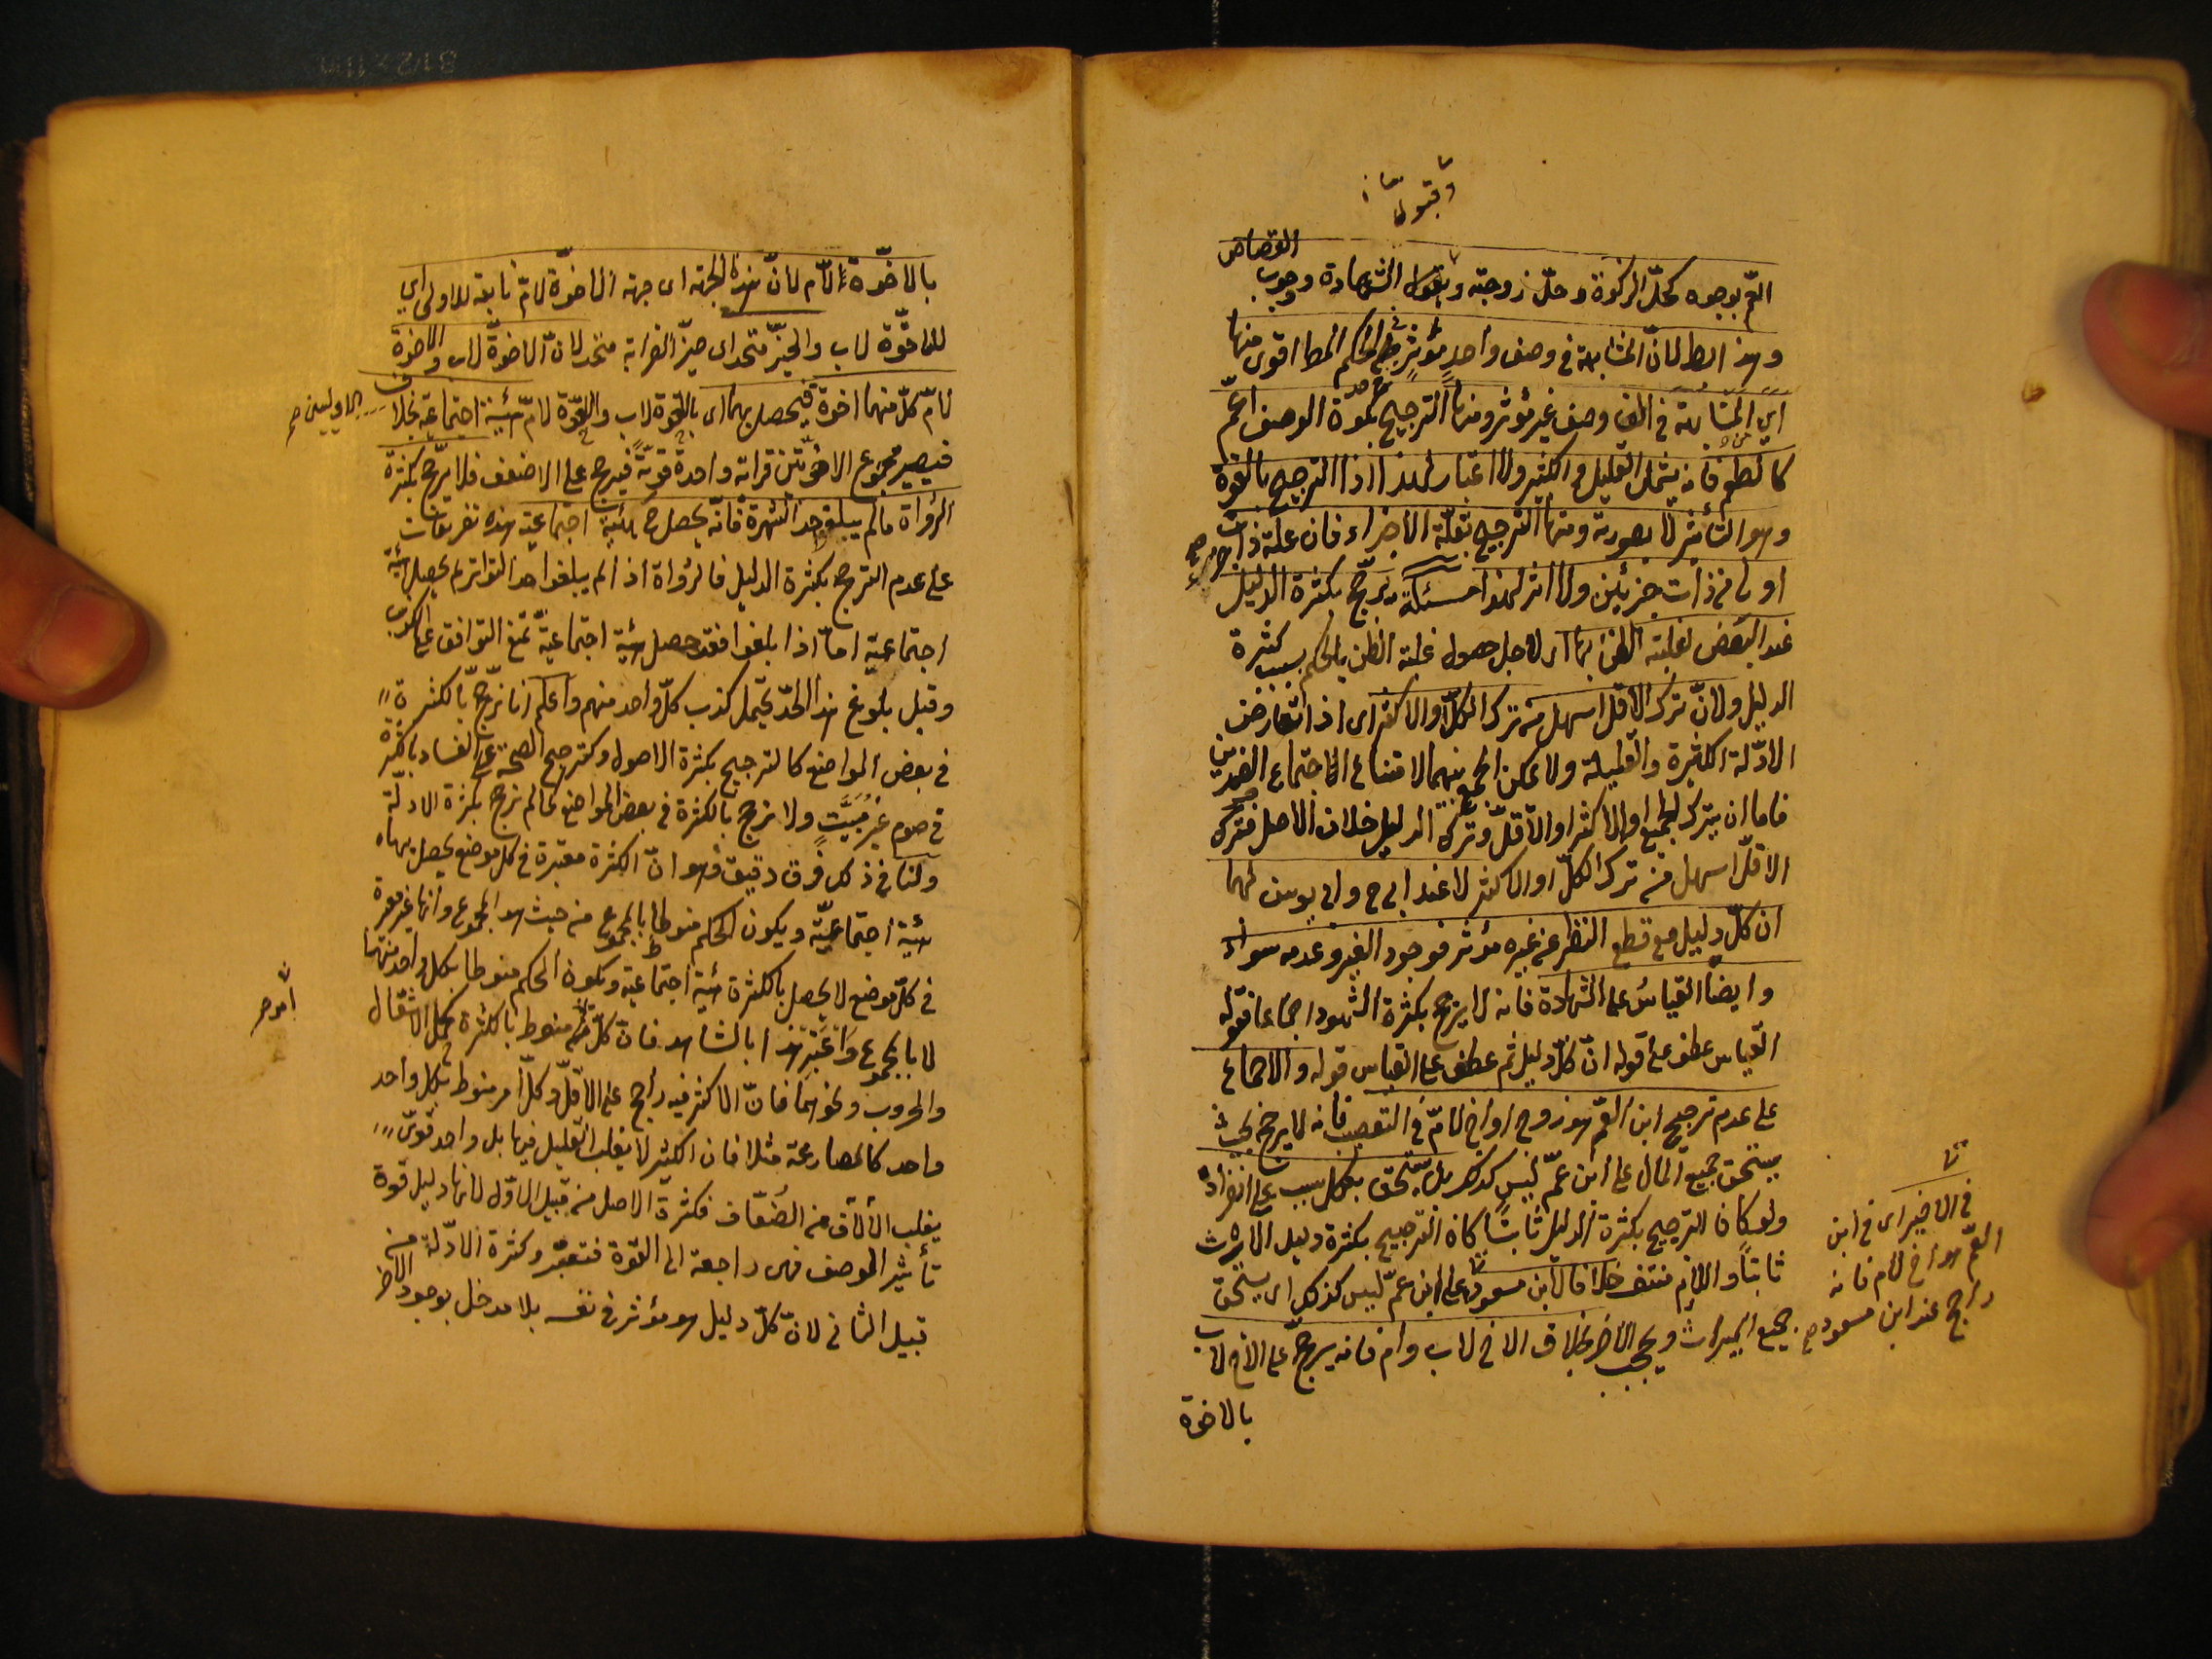 وقبول
القصاص
العم بوجوه كحل الزكوة وحل زوجته وبقبول الشهادة ووجوب
وهذا باطل لان المشابهة في وصف واحد مؤثر في الحكم المط اقوى منها
اي المشابهة في الف وصف غير مؤثر ومنها الترجيح بكون الوصف اعم
كالطعم فانه يشمل القليل والكثير ولا اعتبار لهذا اذ الترجيح بالقوة
وهو التأثير لا بصورته ومنها الترجيح بقلة الاجزاء فان علة ذات جزء
اولى من ذات جزئين ولا اثر لهذا مسئلة يرجح بكثرة الدليل
عند البعض لغلبة الظن بها اى لاجل حصول غلبة الظن بالحكم بسبب كثرة
الدليل ولان ترك الاقل اسهل من ترك الكل او الاكثر اى اذا تعارض
الادلة الكثيرة والقليلة ولا يمكن الجمع بينهما لامتناع الاجتماع الضدين
فاما ان يترك الجميع او الاكثر او الاقل وترك الدليل خلاف الاصل فترك
الاقل اسهل من ترك الكل او الاكثر لا عند ابى ح وابى يوسف لهما
ان كل دليل مع قطع النظر عن غيره مؤثر فوجود الغير وعدمه سواء
وايضا القياس على الشهادة فانه لا يرجح بكثرة الشهود اجماعا فقوله
القياس عطف على قوله ان كل دليل ثم عطف على القياس قوله والاجماع
على عدم ترجيح ابن العم هو زوج او اخ لام في التعصيب فانه لا يرجح بحيث
يستحق جميع المال على ابن عم ليس كذلك بل يستحق بكل سبب على انفراد
ولو كان الترجيح بكثرة الدليل ثابتا كان الترجيح بكثرة دليل الارث
ثابتا واللازم منتف خلافا لابن مسعود على ابن عم ليس كذلك اى يستحق
جميع الميراث ويحجب الاخر بخلاف الاخ لاب وام فانه يرجح على الاخ لاب
بالاخوة
في الاخير اى في ابن
العم هو اخ لام فانه
راجح عند ابن مسعود صح
بالاخوة لام لان هذه الجهة اى جهة الاخوة لام تابعة للاولى اي
للاخوة لاب والحيز متحد اى حيز القرابة متحد لان الاخوة لاب والاخوة
لام كل منهما اخوة فيحصل بهما اى بالاخوة لاب والاخوة لام هيئة اجتماعية بخلاف
الاوليين صح
فيصير مجموع الاخوتين قرابة واحدة قوية فيرجح على الاضعف فلا يرجح بكثرة
الرواة مالم يبلغ حد الشهرة فانه يحصل ح هيئة اجتماعية هذه تفريعات
على عدم الترجح بكثرة الدليل فالرواة اذا لم يبلغوا حد التواتر لم يحصل هيئة
اجتماعية اما اذا بلغوا فقد حصل هيئة اجتماعية تمنع التوافق على الكذب
وقبل بلوغ هذا الحد يحتمل كذب كل واحد منهم واعلم انا نرجح بالكثرة
في بعض المواضع كالترجيح بكثرة الاصول وكترجيح الصحة على الفساد بالكثرة
في صوم غير مبيت ولا نرجح بالكثرة في بعض المواضع كمالم نرجح بكثرة الادلة
ولنا في ذلك فرق دقيق وهو ان الكثرة معتبرة في كل موضع يحصل بها
هيئة اجتماعية ويكون الحكم منوطا بالمجموع من حيث هو المجموع وانها غير معتبرة
في كل موضع لا يحصل بالكثرة هيئة اجتماعية ويكون الحكم منوطا بكل واحد منهما
لا بالمجموع واعتبر هذا بالشاهد فان كل منوط بالكثرة كحمل الاثقال
امر صح
والحروب ونحوهما فان الاكثر فيه راجح على الاقل وكل امر منوط بكل واحد
واحد كالمصارعة مثلا فان الكثير لا يغلب القليل فيها بل واحد قوى
يغلب الآلاف من الضعاف فكثرة الاصل من قبيل الاول لانها دليل قوة
تأثير الوصف فهى راجعة الى القوة فتعتبر وكثرة الادلة من
قبيل الثانى لان كل دليل هو مؤثر في نفسه بلا مدخل لوجود الاخر